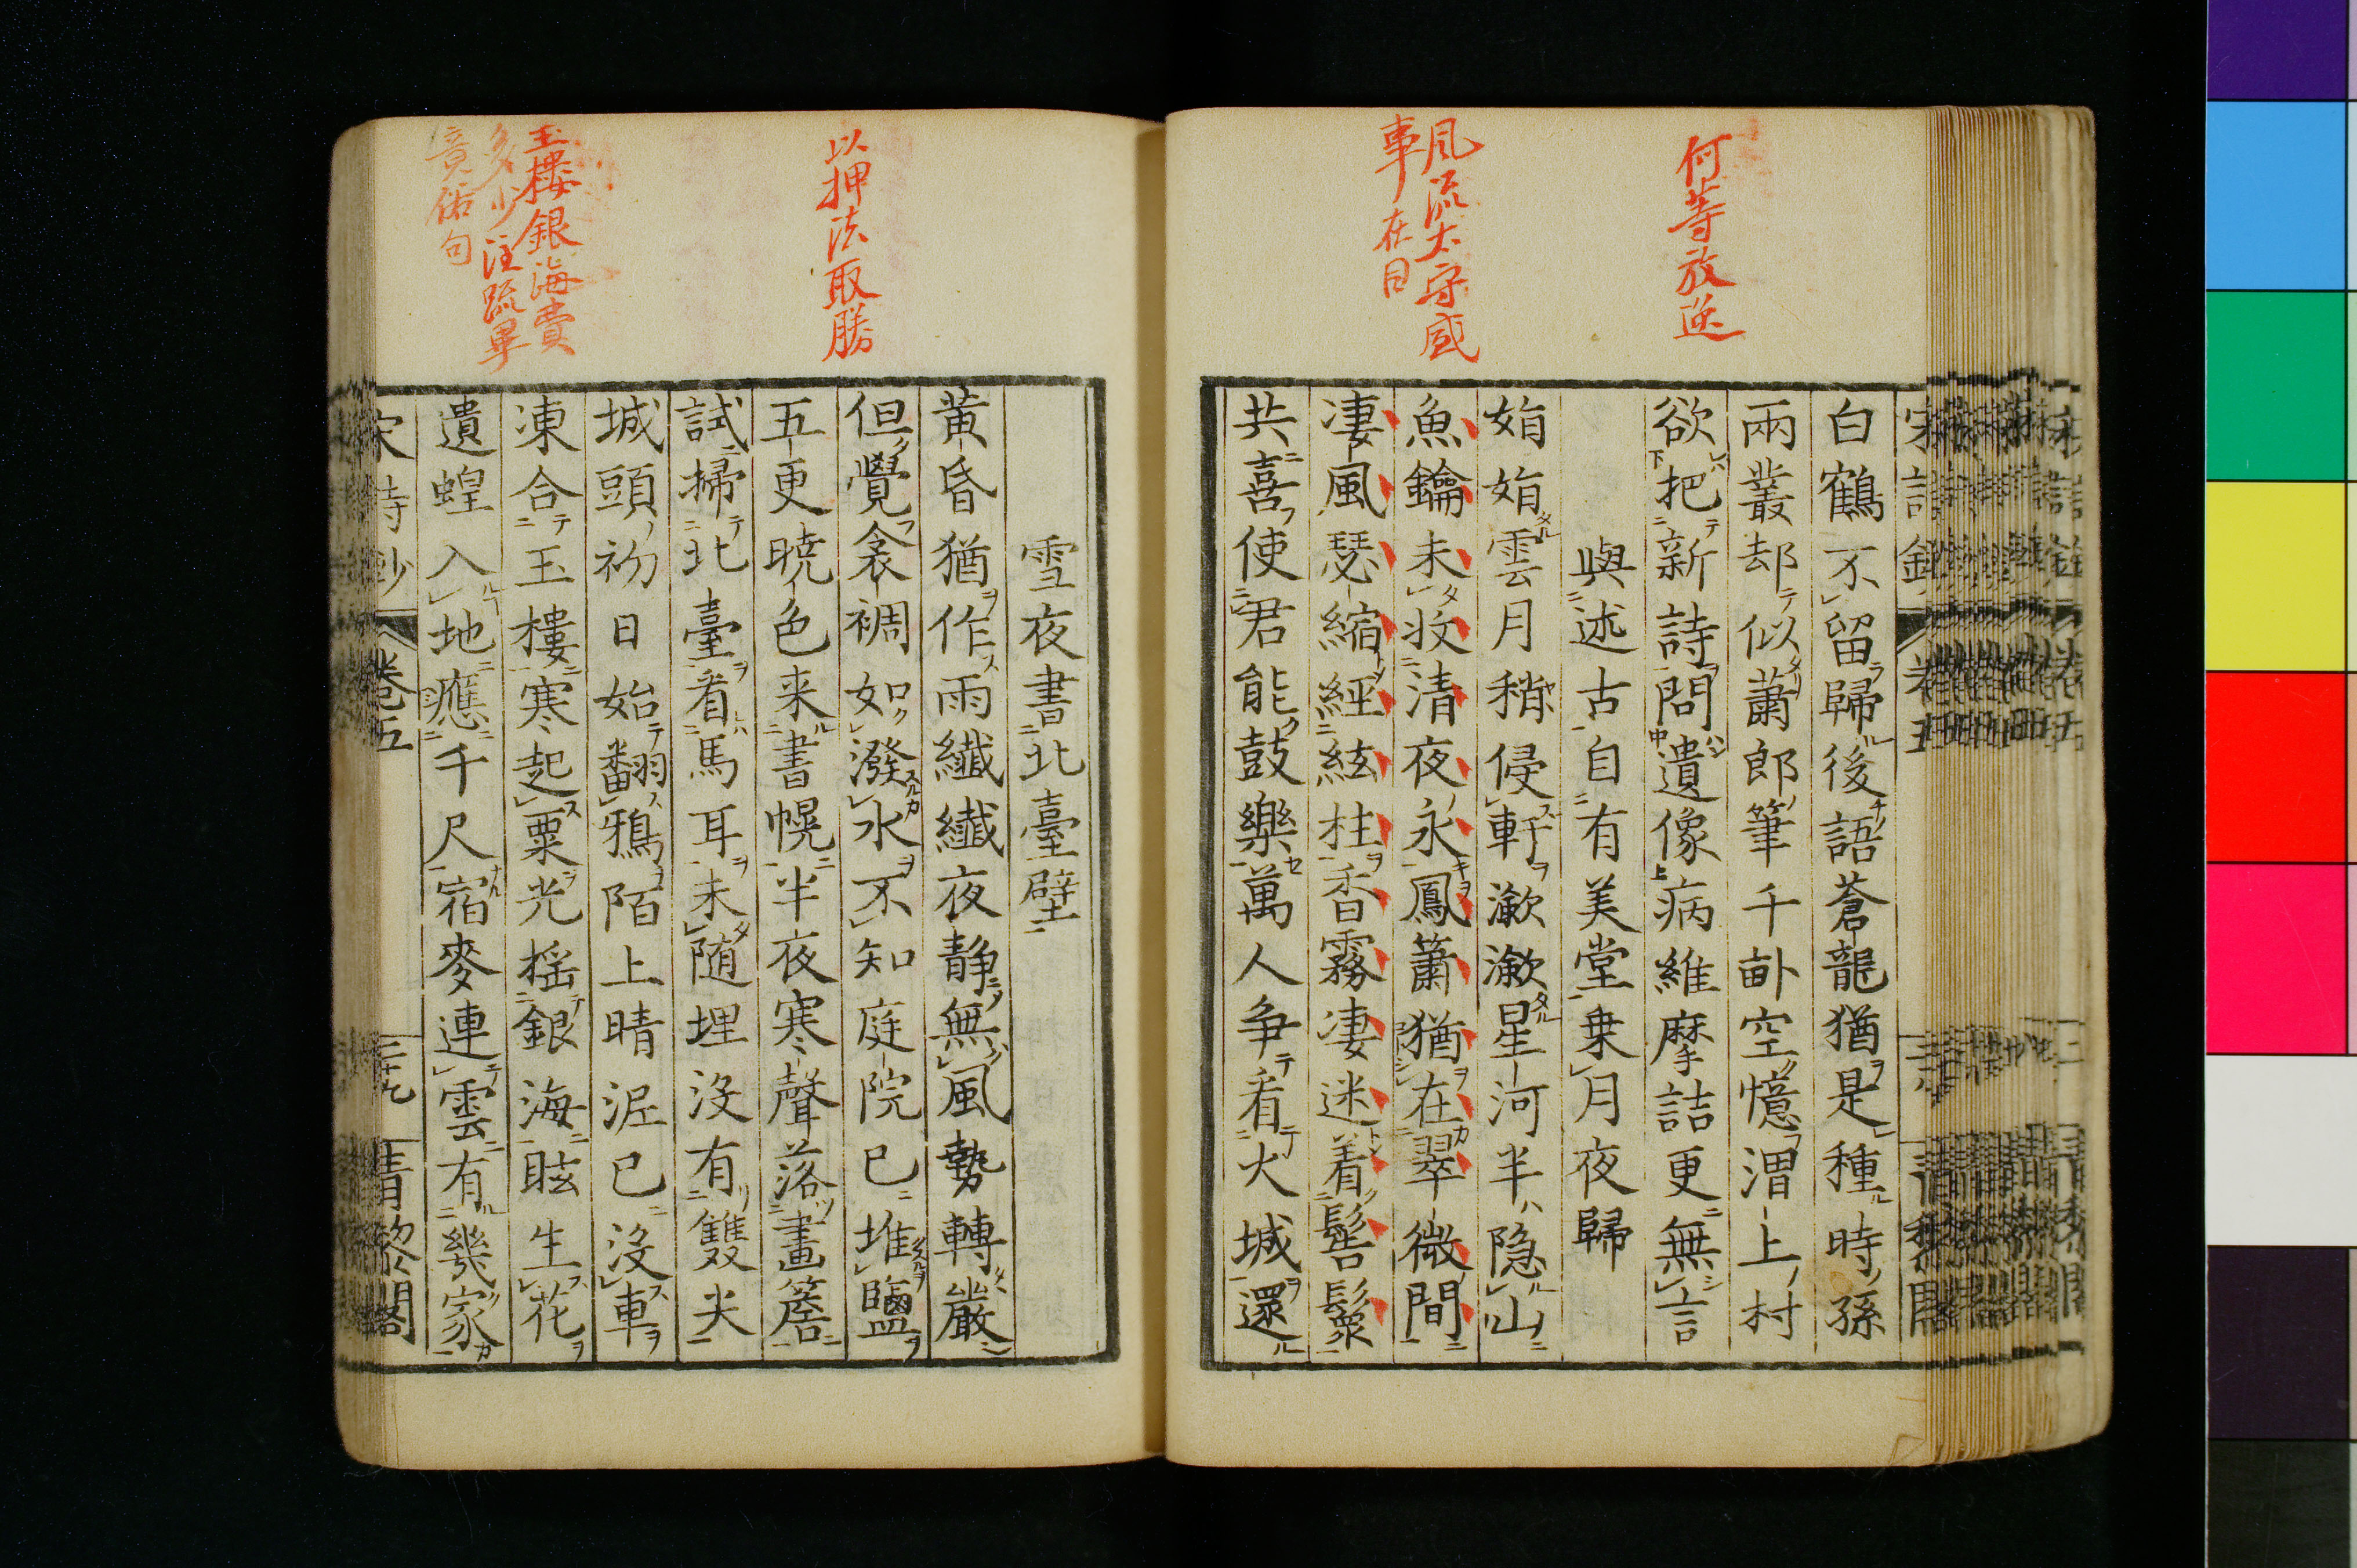 何等放逆
風流太守盛
事在目
白鶴不留歸後語蒼龍猶是種時孫
兩叢却似蕭郎筆千畝空憶渭上村
欲把新詩問遺像病維摩詰更無言
與述古自有美堂乗月夜歸
娟娟雲月稍侵軒瀲瀲星河半隐山
魚鑰未收清夜永鳳簫猶在翠微間
凄風瑟縮經絃柱香霧凄迷着髻鬟
共喜使君能鼓樂萬人争看火城還
以押法取勝
玉樓銀海費
多少注疏畢
竟佑句
雪夜書北臺壁
黄昏猶作雨纖纖夜静無風勢轉嚴
但覺衾裯如潑水不知庭院已堆鹽
五更曉色来書幌半夜寒聲落畫簷
試掃北臺看馬耳未随埋没有雙尖
城頭初日始翻鴉陌上晴泥已没車
凍合玉樓寒起粟光摇銀海眩生花
遺蝗入地應千尺宿麥連雲有幾家
宋詩鈔 卷五 三十九 青黎閣